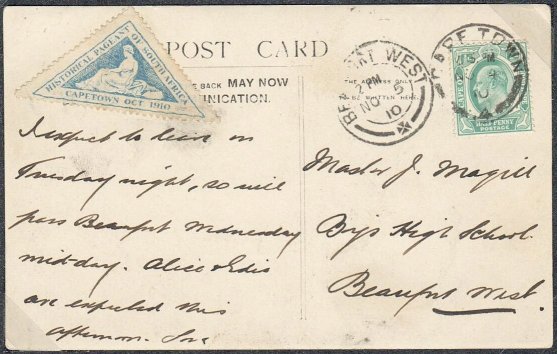 HISTORICAL PAGEANT
OF SOUTH AFRICA
CAPETOWN OCT 1910
POST CARD
BACK MAY NOW
NICATION.
THE ADDRESS ONLY
BE WRITTEN HERE.
BEAUFORT WEST
2 PM
NO 5
10
CAPE TOWN
10
HALF PENNY
POSTAGE
I expect to leave on
Tuesday night, so will
pass Beaufort Wednesday
mid-day. Alice & Edis
are expected this
afternoon.
Master J. Magill
Boys High School.
Beaufort West.